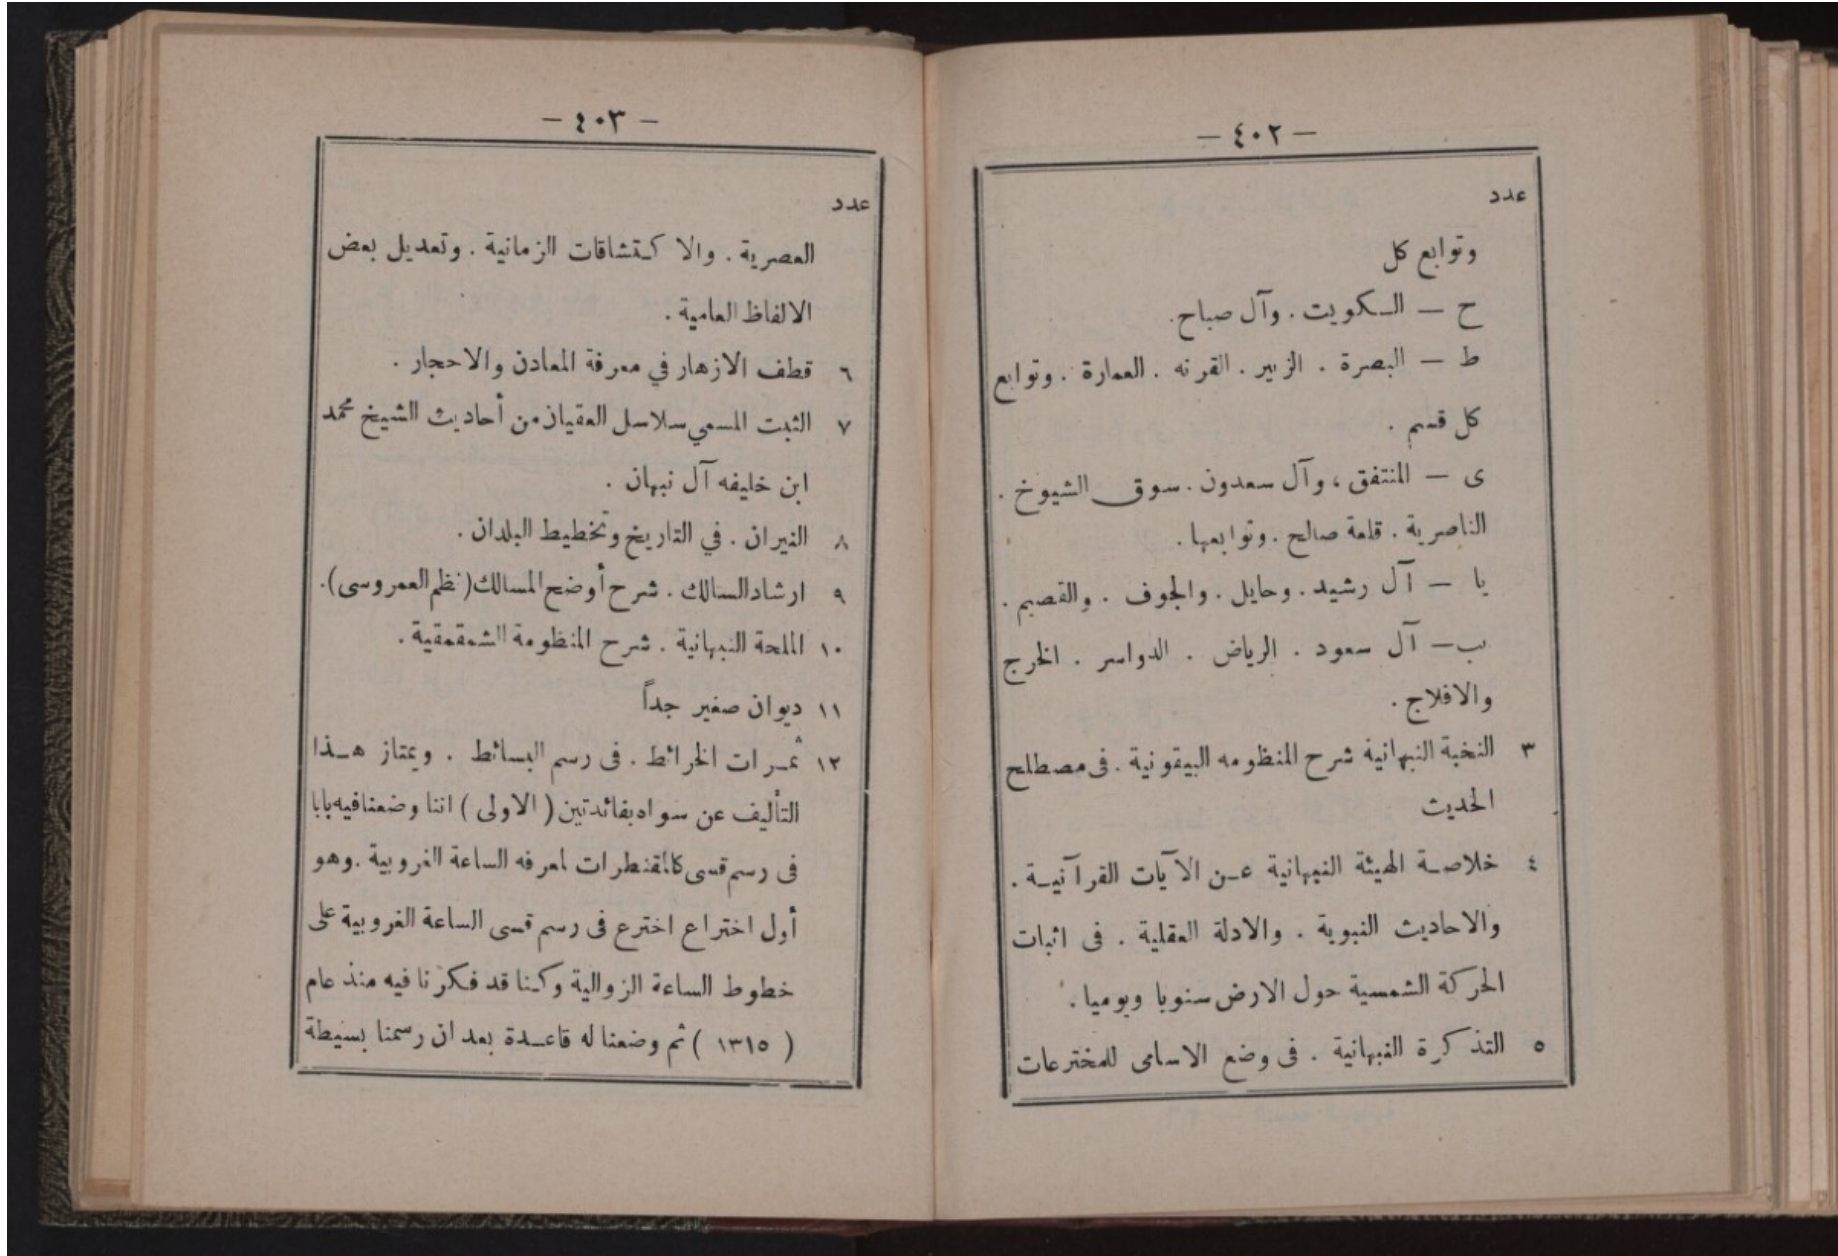 — ٤٠٢ —
عدد
وتوابع كل
ح — الـكويت . وآل صباح.
ط — البصرة . الزبير . القرنه . العمارة . وتوابع
كل قسم .
ى — المنتفق ، وآل سعدون . سوق الشيوخ .
الناصرية . قلعة صالح . وتوابعها .
يا — آل رشيد . وحايل . والجوف . والقصيم .
يب — آل سعود . الرياض . الدواسر . الخرج
والافلاج .
٣ النخبة النبهانية شرح المنظومه البيقونية . فى مصطلح
الحديث
٤ خلاصـة الهيئة النبهانية عـن الآيات القرآنيـة .
والاحاديث النبوية . والادلة العقلية . فى اثبات
الحركة الشمسية حول الارض سنويا ويوميا .
٥ التذكرة النبهانية . فى وضع الاسامى للمخترعات
— ٤٠٣ —
عدد
العصرية . والاكتشاقات الزمانية . وتعديل بعض
الالفاظ العامية .
٦ قطف الازهار في معرفة المعادن والاحجار .
٧ الثبت المسمي سلاسل العقيان من أحاديث الشيخ محمد
ابن خليفه آل نبهان .
٨ النيران . في التاريخ وتخطيط البلدان .
٩ ارشاد السالك . شرح أوضح المسالك (نظم العمروسى).
١٠ الملحة النبهانية . شرح المنظومة الشمقمقية .
١١ ديوان صغير جداً
١٢ ثمـرات الخرائط . فى رسم البسائط . ويمتاز هـذا
التأليف عن سواه بفائدتين ( الاولى ) اننا وضعنا فيه بابا
فى رسم قسى كالمقنطرات لمعرفه الساعة الغروبية . وهو
أول اختراع اخترع فى رسم قسى الساعة الغروبية على
خطوط الساعة الزوالية وكـنا قد فـكرنا فيه منذ عام
( ١٣١٥ ) ثم وضعنا له قاعـدة بعد ان رسمنا بسيطة